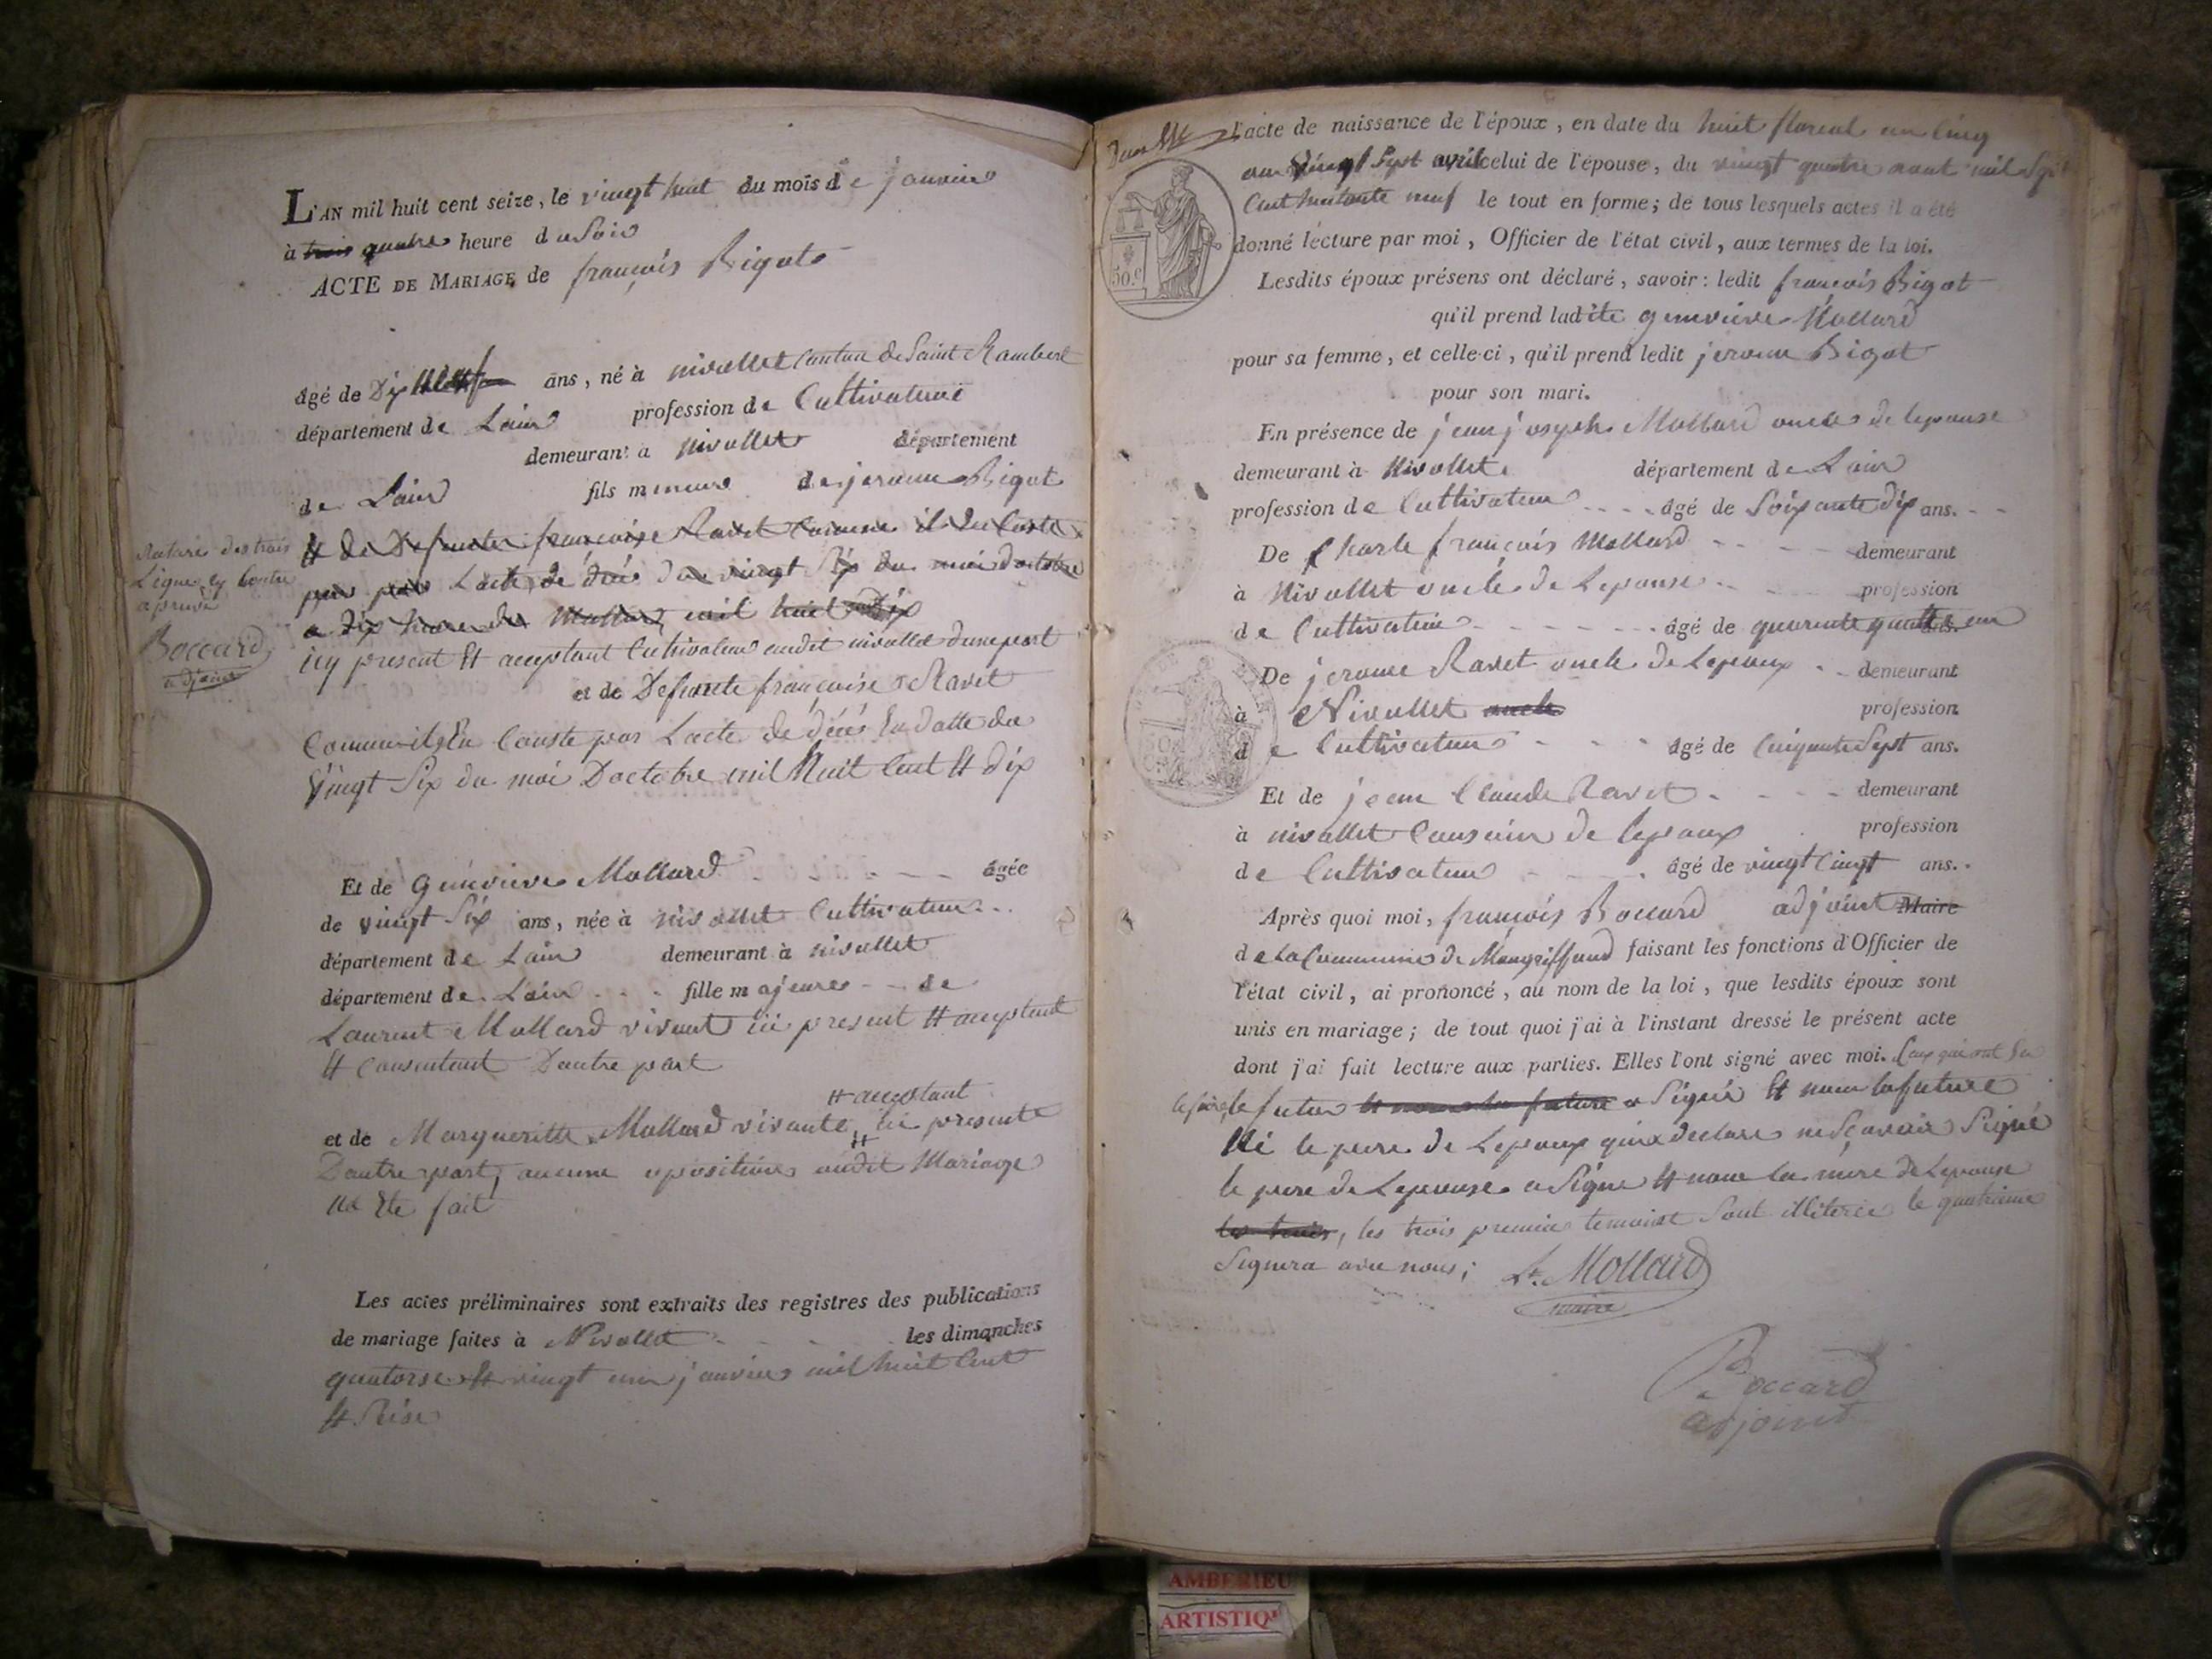 L'AN mil huit cent seize, le vingt huit du mois de janvier
à trois quatre heure du Soir
ACTE DE MARIAGE de françois Bigot
âgé de Dix ans, né à nivollet canton de Saint Rambert
département de Lain profession de Cultivateur
demeurant à nivollet département
de Lain fils mineur de jerome Bigot
et de Defunte françoise Ravet Comme il En Conste
par Lacte de décé du vingt Six du moi doctobre
a dix heure du mil huit Dix
Raturé des trois
Ligne cy contre
apruvé
Boccard
adjoint
icy present et acceptant Cultivateur audit nivollet dune part
et de Defunte françoise Ravet
Comme il En Conste par Lacte de décé En datte du
Vingt Six du moi Doctobre mil Huit Cent et dix
Et de Genevieve Mollard âgée
de vingt Six ans, née à nivollet Cultivateur
département de Lain demeurant à nivollet
département de Lain fille majeure de
Laurent Mollard vivant ici present et acceptant
et Consentent Dautre part
et acceptant
et de Margueritte Mollard vivante, ici presente
Dautre part, aucune oposition audit Mariage
na Ete fait
Les actes préliminaires sont extraits des registres des publications
de mariage faites à Nivollet les dimanches
quatorse et vingt un janvier mil huit Cent
et Seise
l'acte de naissance de l'époux, en date du huit floreal an Cinq
ou Vingt Sept avril celui de l'épouse, du vingt quatre aout mil Sept
Cent huitante neuf le tout en forme; de tous lesquels actes il a été
donné lecture par moi, Officier de l'état civil, aux termes de la loi.
50.C
Lesdits époux présens ont déclaré, savoir: ledit françois Bigot
qu'il prend ladite genevieve Mollard
pour sa femme, et celle-ci, qu'il prend ledit jerome Bigot
pour son mari.
En présence de jean joseph Mollard oncle de lepouse
demeurant à Nivollet département de Lain
profession de Cultivateur âgé de Soixante dix ans.
De Charle françois Mollard demeurant
à Nivollet oncle de Lepouse profession
de Cultivateur âgé de quarente quatre an
De jerome Ravet oncle de Lepoux demeurant
à Nivollet oncle profession
de Cultivateur âgé de Cinquante Sept ans.
Et de jean Claude Ravet demeurant
à nivollet Cousin de lepoux profession
de Cultivateur âgé de vingt Cinqt ans.
Après quoi moi, françois Boccard adjoint Maire
de La Commune de Mongriffond faisant les fonctions d'Officier de
l'état civil, ai prononcé, au nom de la loi, que lesdits époux sont
unis en mariage; de tout quoi j'ai à l'instant dressé le présent acte
dont j'ai fait lecture aux parties. Elles l'ont signé avec moi. Ceux qui ont Su
le faire, le futur et non la future a Signé et non la future
Ni le pere de Lepoux qui a declare ne Sçavoir Signé
le pere de Lepouse a Signe et non la mere de Lepouse
les trois, les trois premier temoint Sont illiteré le quatrieme
Signera avec nous;
Lt. Mollard
maire
Boccard
adjoint
AMBERIEU
ARTISTIQ